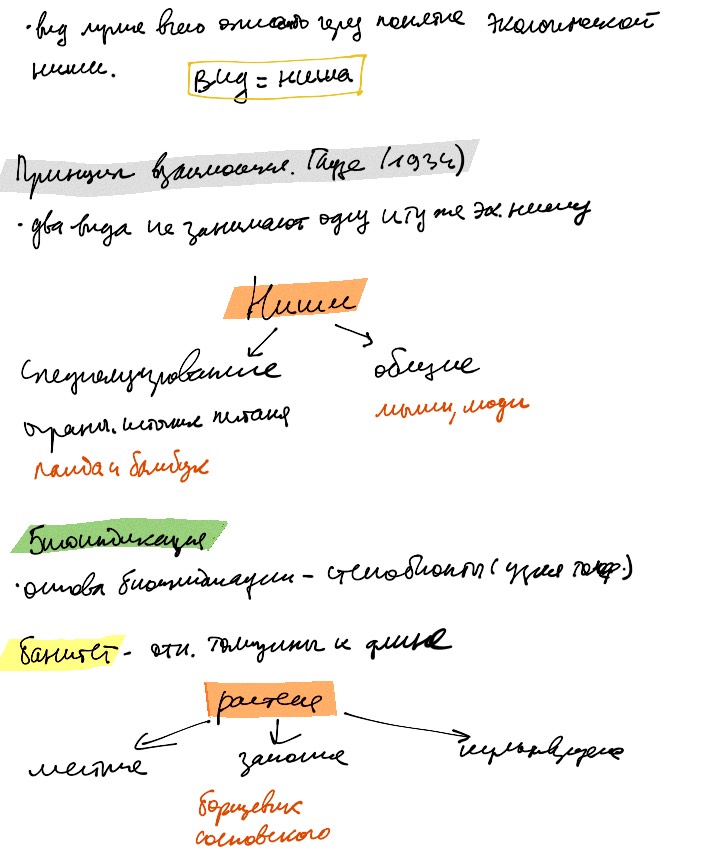 · вид лучше всего описать через понятие экологической
ниши.
Вид = ниша
Принцип взаимоискл. Гаузе (1934)
· два вида не занимают одну и ту же эк. нишу
Ниши
специализирование общие
огранич. источник питания мыши, люди
панда и бамбук
Биоиндикация
· основа биоиндикации – стенобионты (узкая толер.)
банитет – отн. толщины к длине
растения
местные заносные
борщевик
сосновского